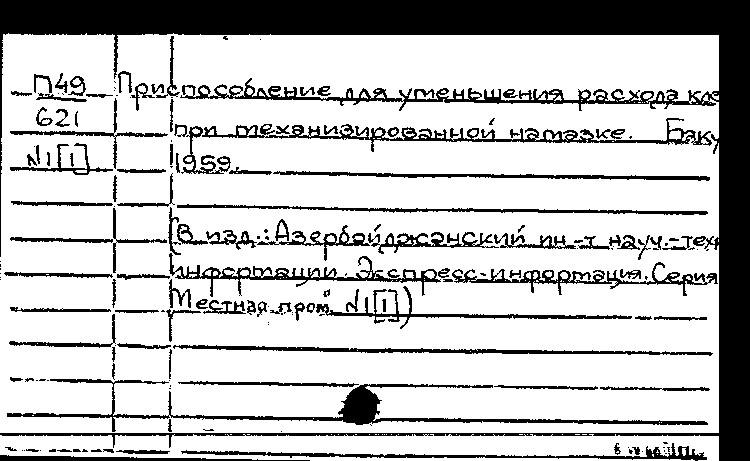 П49 Приспособление для уменьшения расхода кле
621 при механизированной намазке. Баку
N1[1] 1959.
(В изд.: Азербайджанский ин-т науч.-техн
информации. Экспресс-информация. Серия
Местная пром. N1[1])